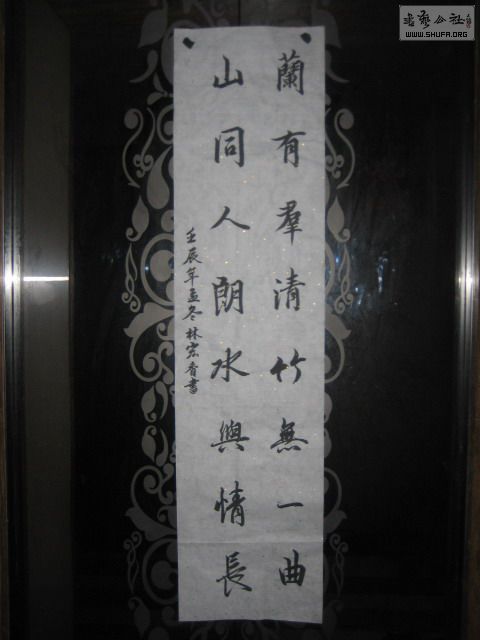 蘭有羣清竹無一曲
山同人朗水與情長
壬辰年孟冬林宏香書
書藝公社
WWW.SHUFA.ORG